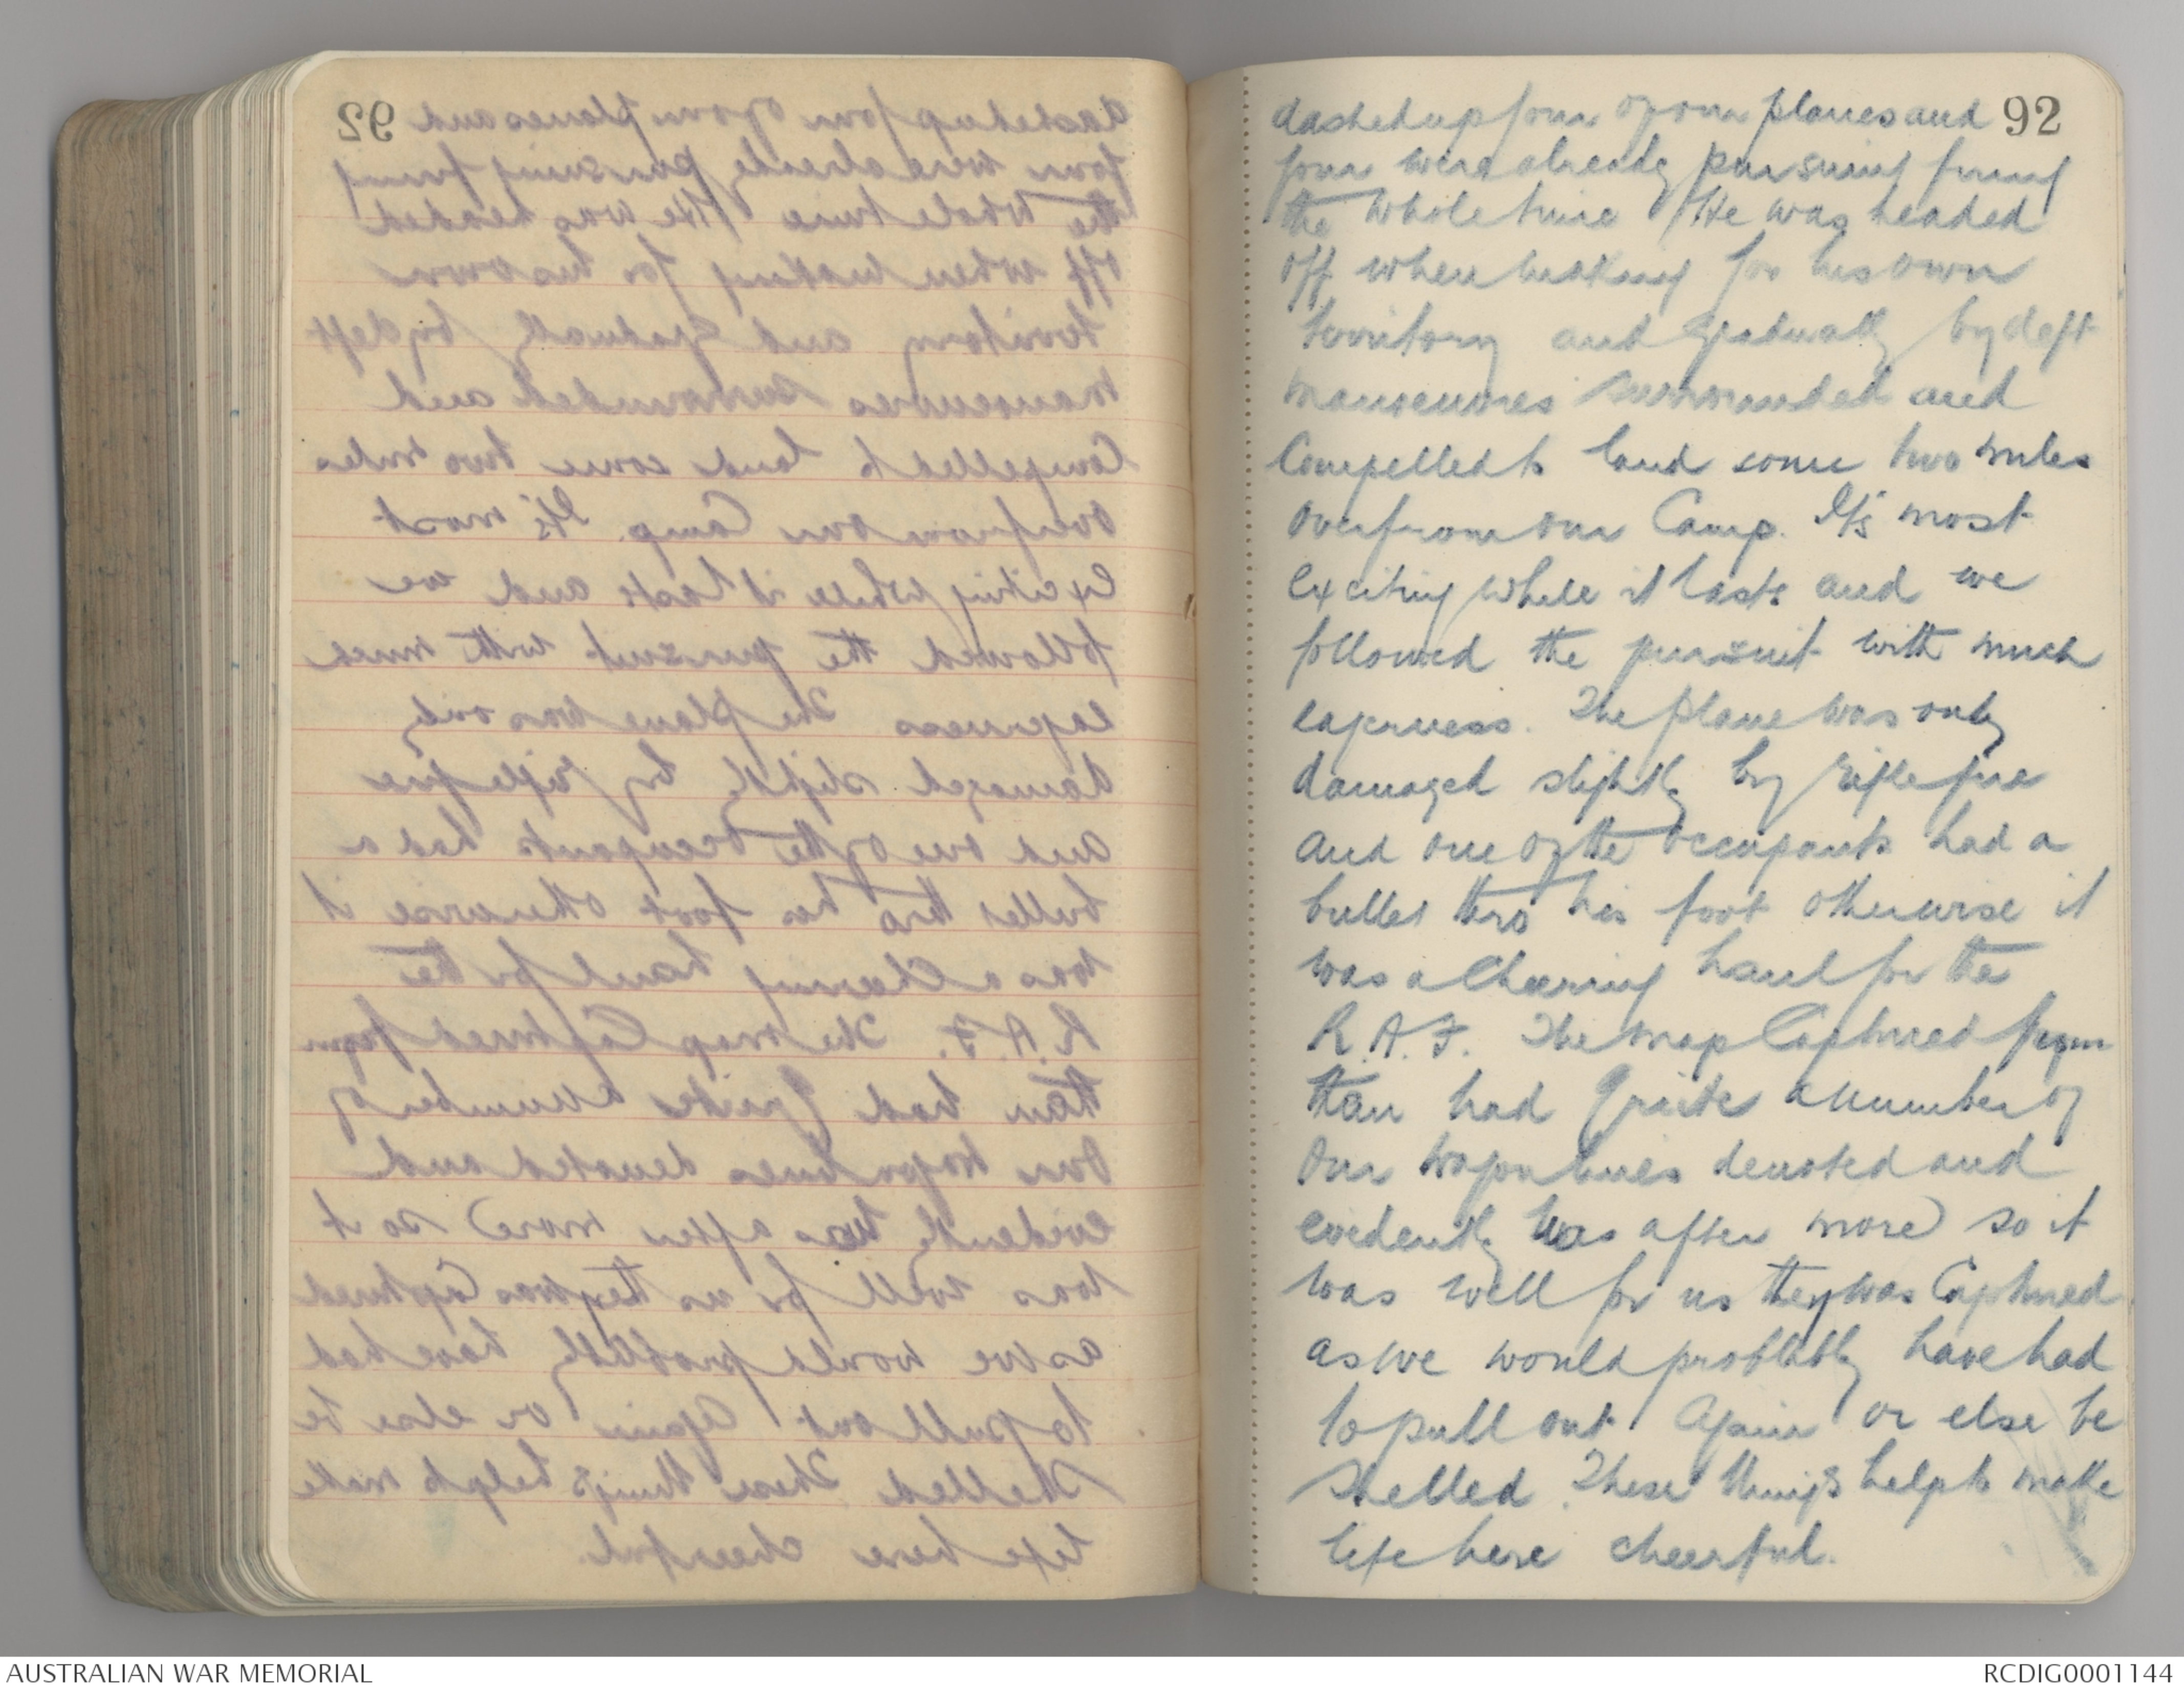 92
dashed up four of our planes and
four were already pursuing firing
the whole time He was headed
off when making for his own
territory and gradually by deft
manoeuvres surrounded and
Compelled to land some two miles
over from our Camp. It's most
exciting while it lasts and we
followed the pursuit with much
eagerness. The plane was only
damaged slightly by rifle fire
and one of the occupants had a
bullet thro his foot otherwise it
was a cheering haul for the
R.A.F. The map Captured from
them had quite a number of
our wagon lines denoted and
evidently was after more so it
was well for us they was Captured
as we would probably have had
to pull out again or else be
shelled. These things help to make
life here cheerful.
AUSTRALIAN WAR MEMORIAL
RCDIG0001144